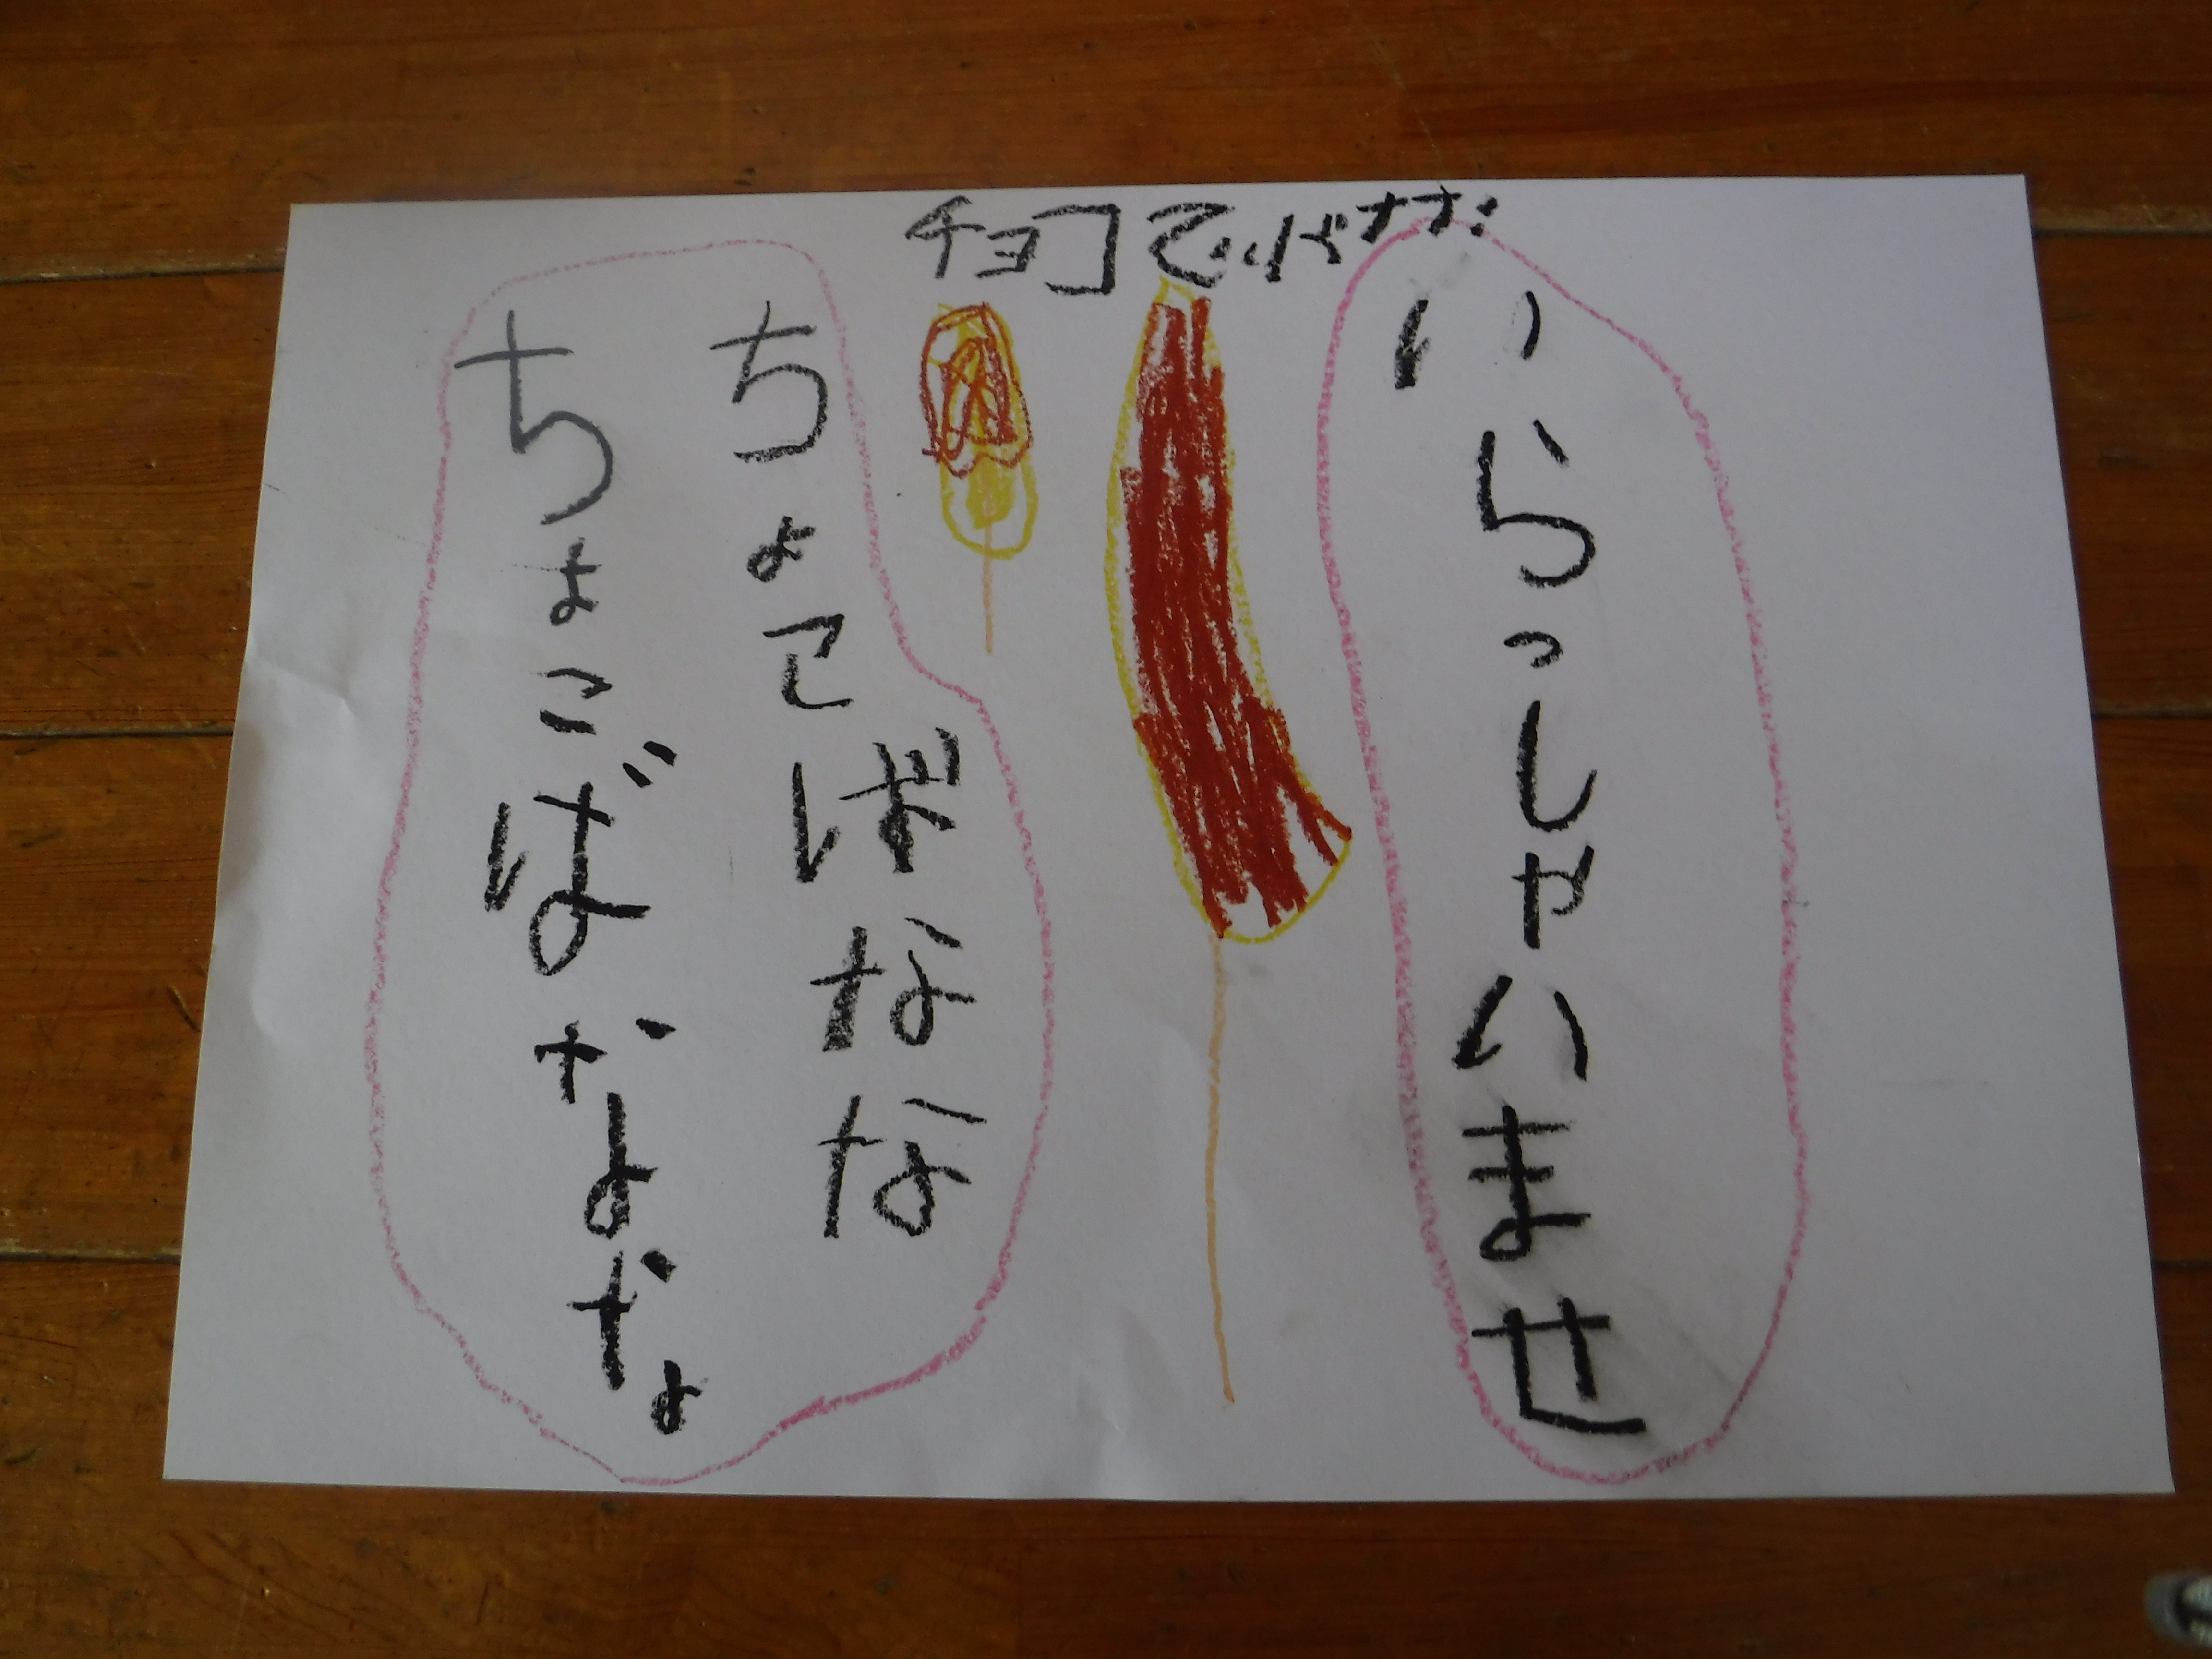 チョコバナナ
いらっしゃいませ
ちょこばなな
ちょこばなな